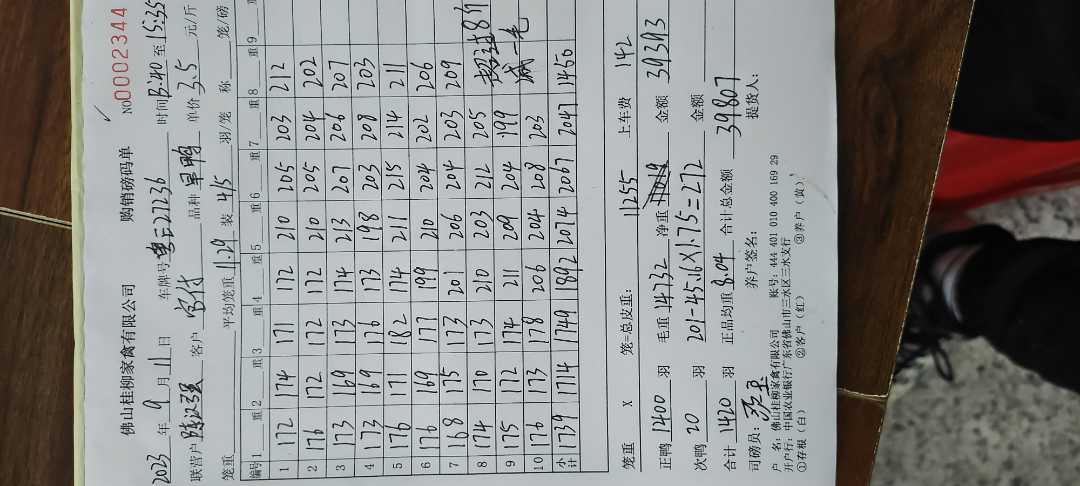 佛山桂柳家禽有限公司 购销磅码单 NO 0002344
2023 年 9 月 11 日 车牌号 粤E27236 时间 13:40 至 15:35
联营户 客户 品种 旱鸭 单价 3.5 元/斤
笼重 平均笼重 11.29 装 4/5 羽/笼 称 笼/磅
编号 1 重 2 重 3 重 4 重 5 重 6 重 7 重 8 重 9 重
1 172 174 171 172 210 205 203 212
2 176 172 172 172 210 205 204 202
3 173 169 173 174 213 207 206 207
4 173 169 176 173 198 203 208 203
5 176 171 182 174 211 215 214 211
6 176 169 177 199 210 204 202 206
7 168 175 173 201 206 204 203 209
8 174 170 173 210 203 212 205
9 175 172 174 211 209 204 199 减一毛
10 176 173 178 206 204 208 203
小计 1739 1714 1749 1892 2074 2067 2047 1450
笼重 X 笼=总皮重: 11255 上车费 142
正鸭 1400 羽 毛重 14732 净重 金额 39393
次鸭 20 羽 201-45.16X1.75=272 金额
合计 1420 羽 正品均重 8.04 合计总金额 39807
司磅员: 养户签名: 提货人:
户 名: 佛山桂柳家禽有限公司 账号: 444 401 010 400 169 29
开户行: 中国农业银行广东省佛山市三水区三水支行
①存根(白) ②客户(红) ③养户(黄)